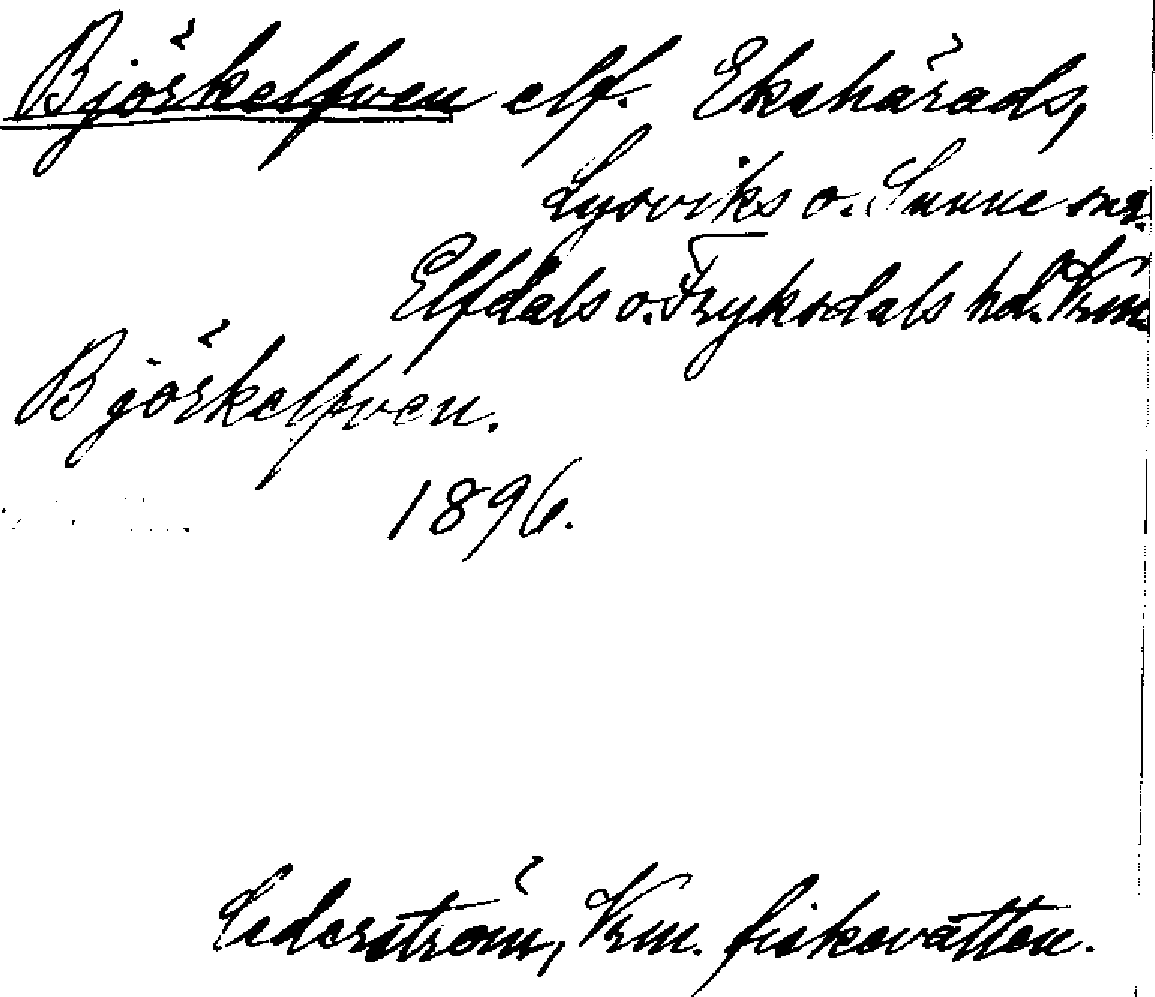 Björkelfven elf. Ekshärads,
Lysviks o. Sunne snr.
Elfdals o. Fryksdals hd. Vrm.
Björkelfven.
1896.
Cederström, Vrm. fiskevatten.